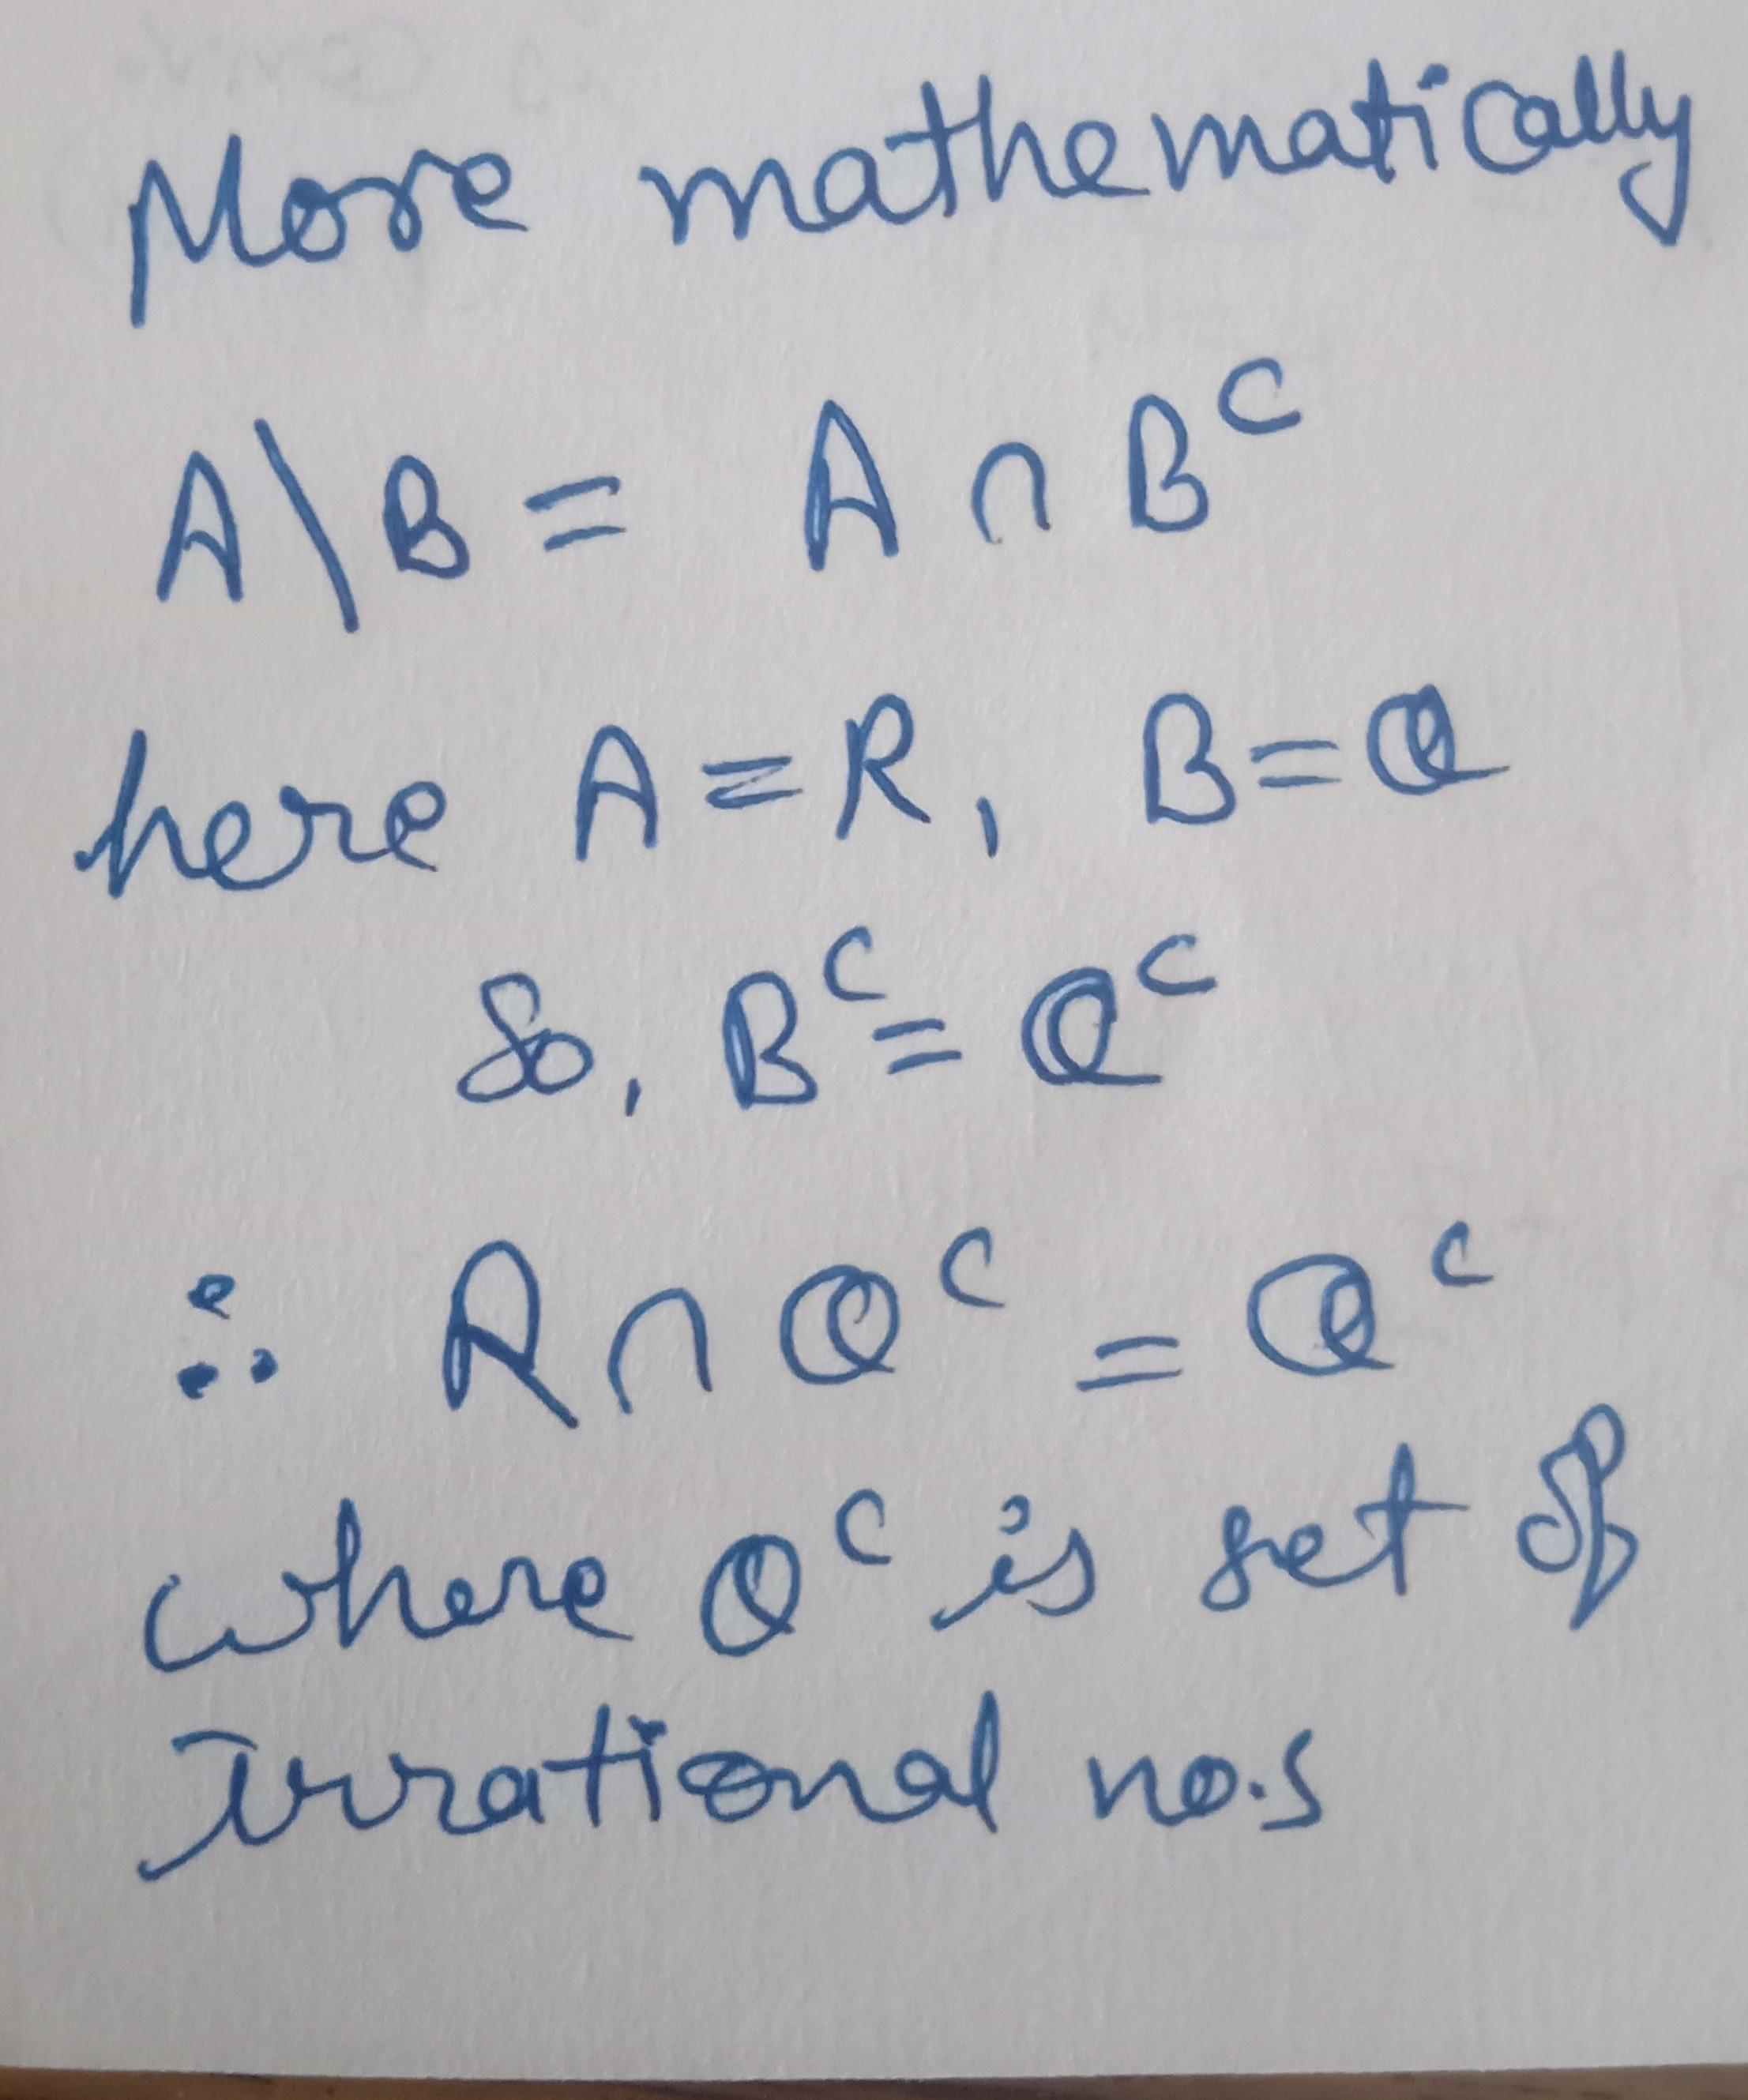 More mathematically
A\B = A ∩ Bᶜ
here A = R, B = Q
So, Bᶜ = Qᶜ
∴ R ∩ Qᶜ = Qᶜ
where Qᶜ is set of
irrational no.s